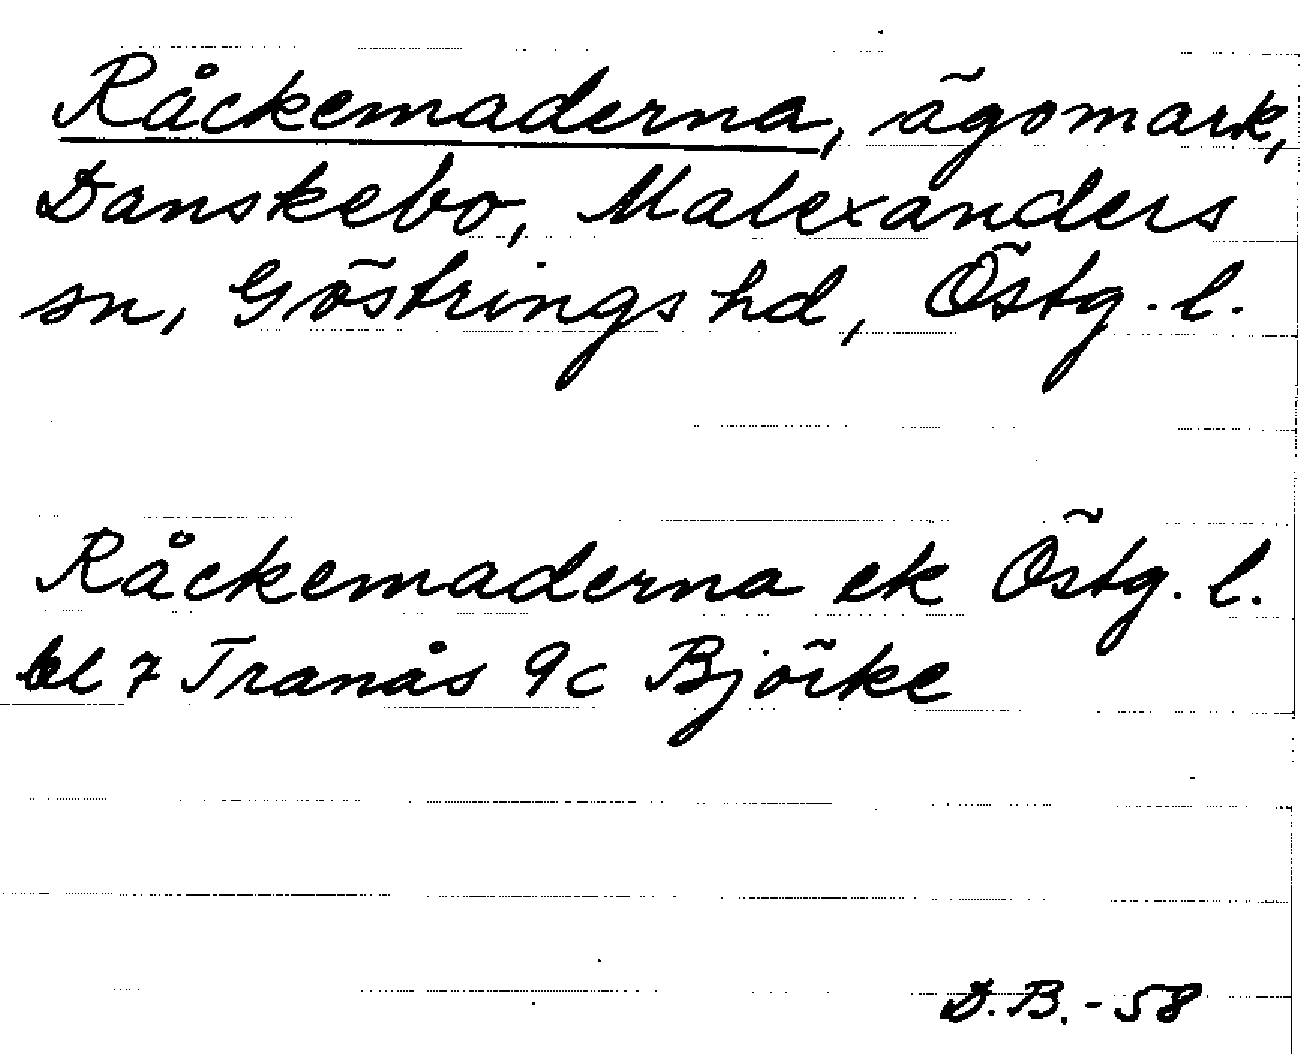 Råckemaderna, ägomark,
Danskebo, Malexanders
sn, Göstrings hd, Östg. l.
Råckemaderna ek Östg. l.
bl 7 Tranås 9c Björke
D.B. - 58